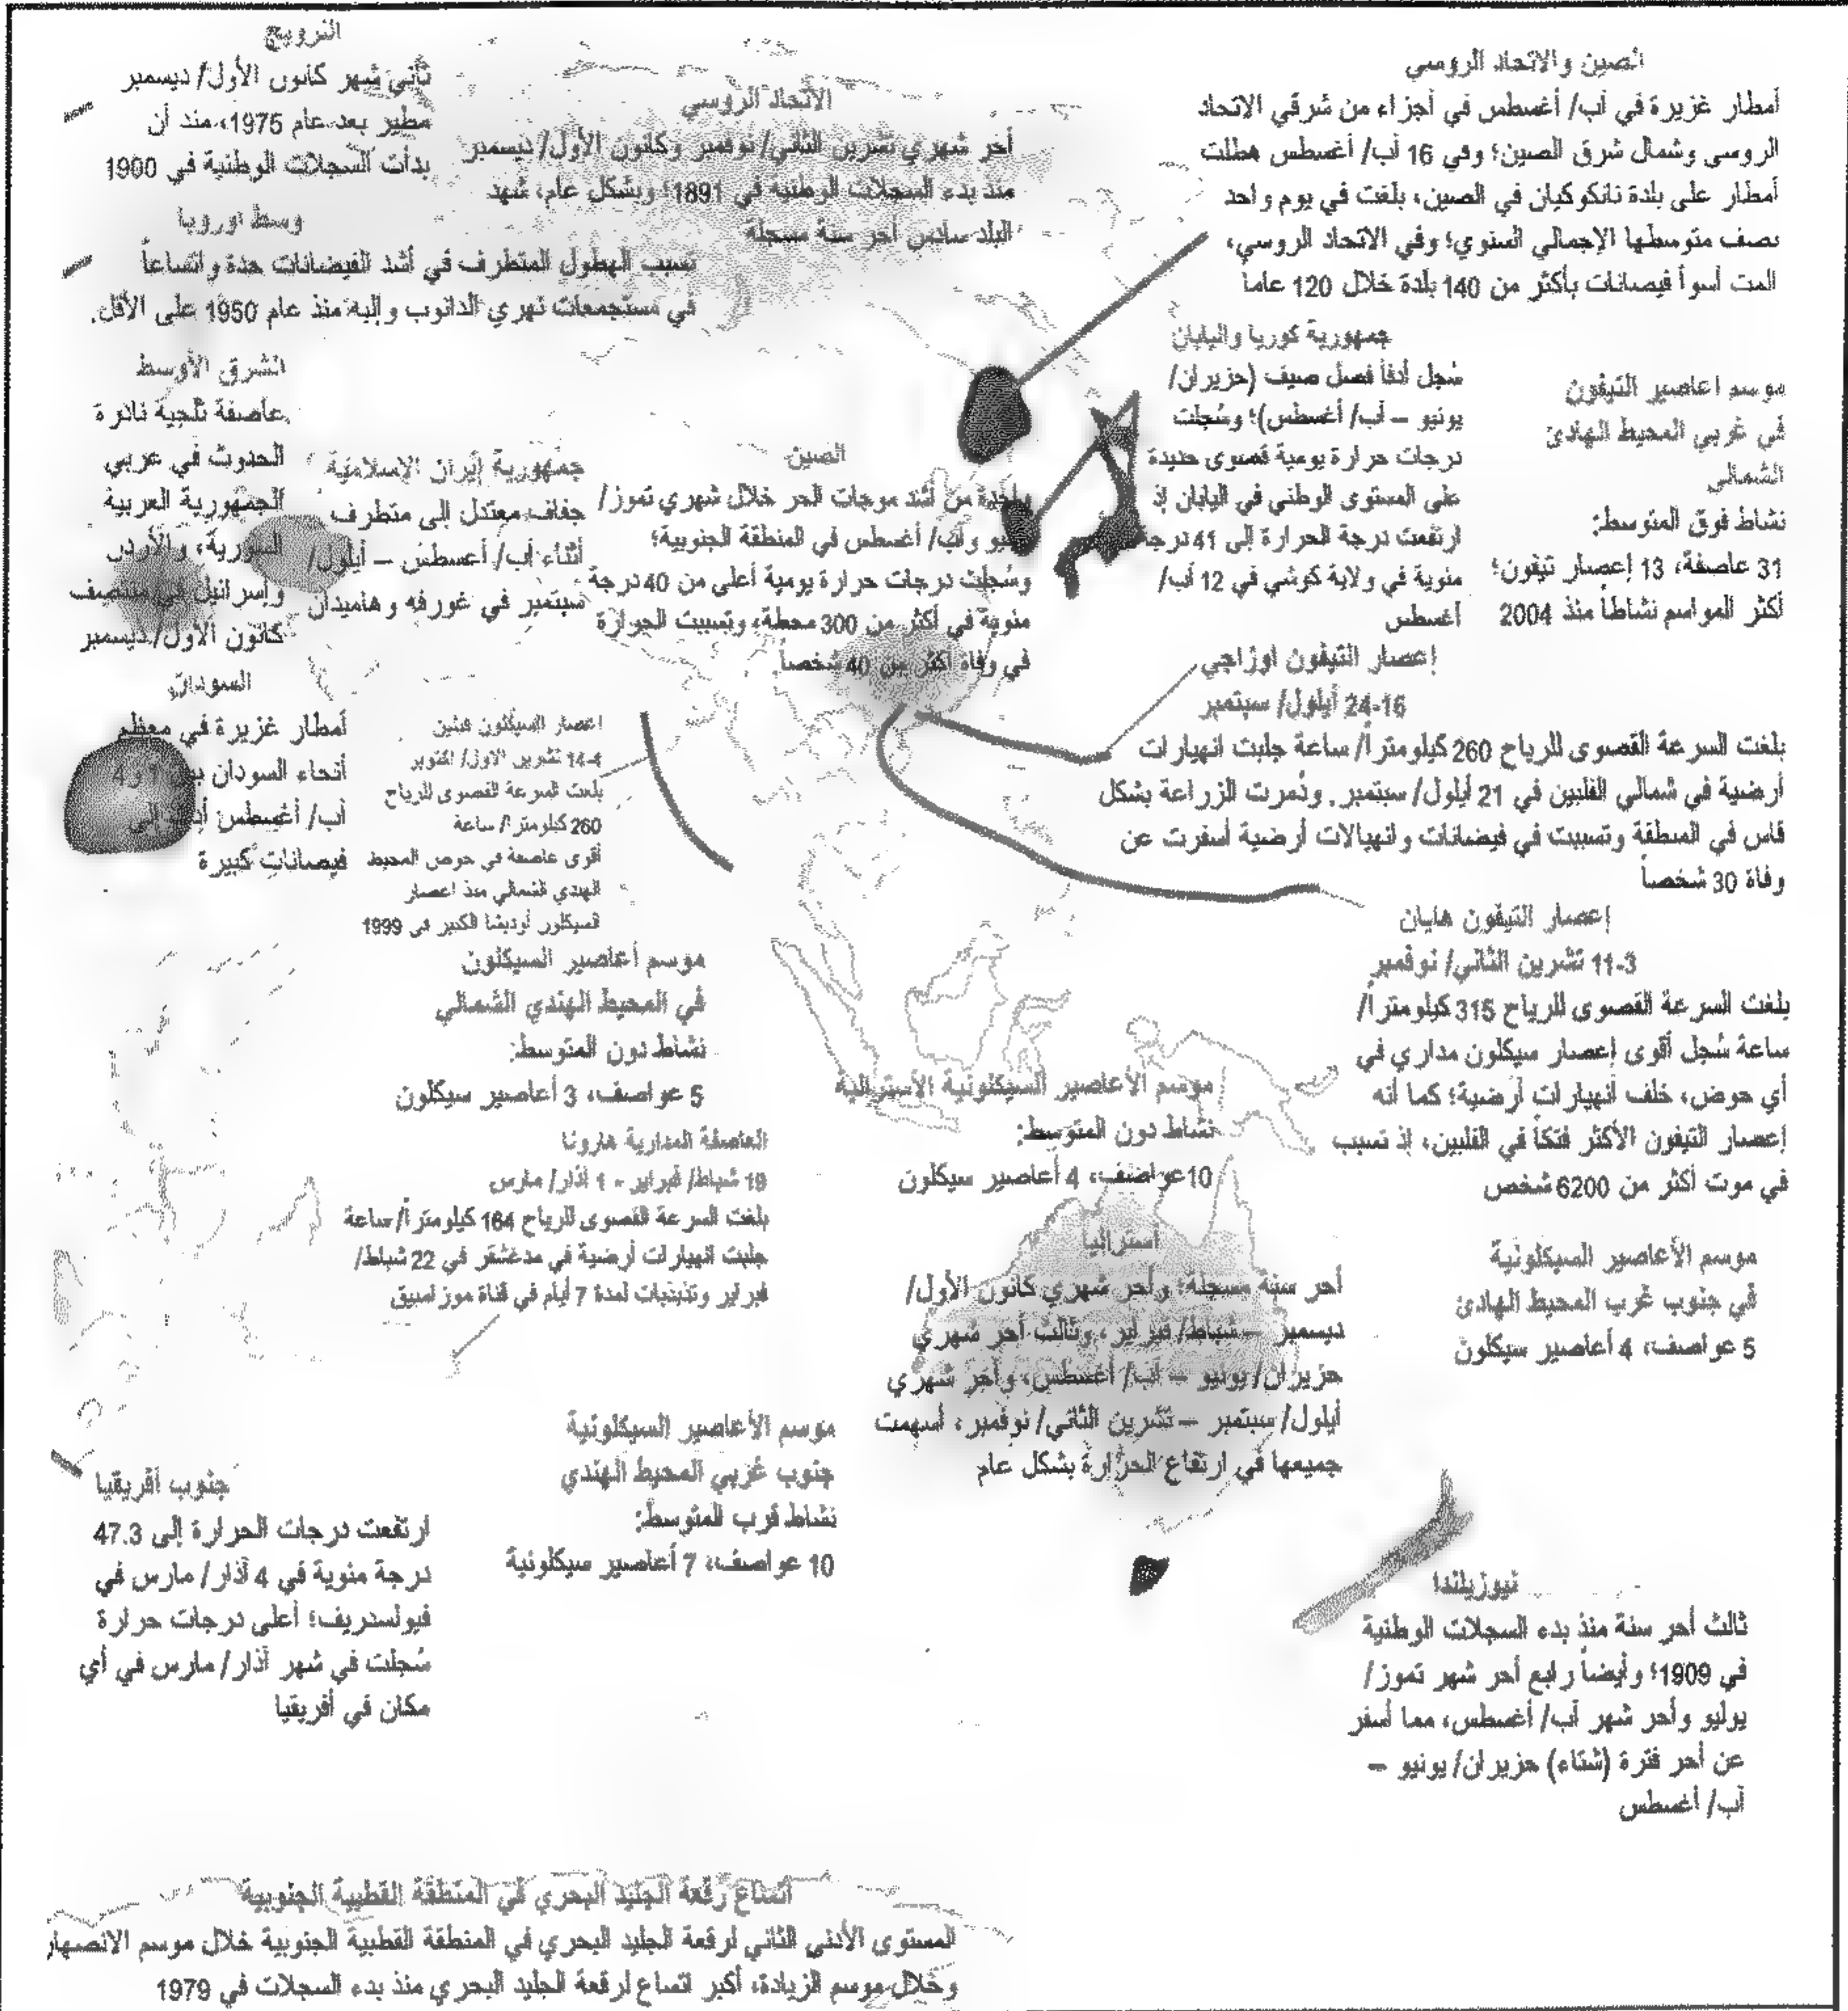 النرويج
ثاني شهر كانون الأول/ ديسمبر
مطير بعد عام 1975، منذ أن
بدأت السجلات الوطنية في 1900
وسط اوروبا
تسبب الهطول المتطرف في أشد الفيضانات حدة واتساعاً
في مستجمعات نهري الدانوب وإلبه منذ عام 1950 على الأقل.
الاتحاد الروسي
أحر شهري تشرين الثاني/ نوفمبر وكانون الأول/ ديسمبر
منذ بدء السجلات الوطنية في 1891؛ وبشكل عام، شهد
البلد سادس أحر سنة مسجلة
الصين والاتحاد الروسي
أمطار غزيرة في آب/ أغسطس في أجزاء من شرقي الاتحاد
الروسي وشمال شرق الصين؛ وفي 16 آب/ أغسطس هطلت
أمطار على بلدة نانكوكيان في الصين، بلغت في يوم واحد
نصف متوسطها الإجمالي السنوي؛ وفي الاتحاد الروسي،
ألمت أسوأ فيضانات بأكثر من 140 بلدة خلال 120 عاما
جمهورية كوريا واليابان
سُجل أدفأ فصل صيف (حزيران/
يونيو – آب/ أغسطس)؛ وسُجلت
درجات حرارة يومية قصوى جديدة
على المستوى الوطني في اليابان إذ
ارتفعت درجة الحرارة إلى 41 درجة
مئوية في ولاية كوشي في 12 آب/
أغسطس
موسم اعاصير التيفون
في غربي المحيط الهادئ
الشمالي
نشاط فوق المتوسط:
31 عاصفة، 13 إعصار تيفون؛
أكثر المواسم نشاطاً منذ 2004
الشرق الأوسط
عاصفة ثلجية نادرة
الحدوث في غربي
الجمهورية العربية
السورية، والأردن
وإسرائيل في منتصف
كانون الأول/ ديسمبر
جمهورية إيران الإسلامية
جفاف معتدل إلى متطرف
أثناء آب/ أغسطس – أيلول/
سبتمبر في غورفه وهاميدان
الصين
واحدة من أشد موجات الحر خلال شهري تموز/
يوليو وآب/ أغسطس في المنطقة الجنوبية؛
وسُجلت درجات حرارة يومية أعلى من 40 درجة
مئوية في أكثر من 300 محطة، وتسببت الحرارة
في وفاة أكثر من 40 شخصاً
إعصار التيفون اوزاجي
16-24 أيلول/ سبتمبر
بلغت السرعة القصوى للرياح 260 كيلومتراً/ ساعة جلبت انهيارات
أرضية في شمالي الفلبين في 21 أيلول/ سبتمبر. ودُمرت الزراعة بشكل
قاس في المنطقة وتسببت في فيضانات وانهيالات أرضية أسفرت عن
وفاة 30 شخصاً
السودان
أمطار غزيرة في معظم
أنحاء السودان بين 1 و4
آب/ أغسطس أدت إلى
فيضانات كبيرة
اعصار السيكلون فيلين
4-14 تشرين الاول/ اكتوبر
بلغت السرعة القصوى للرياح
260 كيلومترا/ ساعة
أقوى عاصفة في حوض المحيط
الهندي الشمالي منذ اعصار
السيكلون أوديشا الكبير في 1999
إعصار التيفون هايان
3-11 تشرين الثاني/ نوفمبر
بلغت السرعة القصوى للرياح 315 كيلومتراً/
ساعة سُجل أقوى إعصار سيكلون مداري في
أي حوض، خلف انهيارات أرضية؛ كما أنه
إعصار التيفون الأكثر فتكاً في الفلبين، إذ تسبب
في موت أكثر من 6200 شخص
موسم أعاصير السيكلون
في المحيط الهندي الشمالي
نشاط دون المتوسط:
5 عواصف، 3 أعاصير سيكلون
موسم الأعاصير السيكلونية الأسترالية
نشاط دون المتوسط:
10 عواصف، 4 أعاصير سيكلون
العاصفة المدارية هارونا
19 شباط/ فبراير - 1 آذار/ مارس
بلغت السرعة القصوى للرياح 164 كيلومتراً/ ساعة
جلبت انهيارات أرضية في مدغشقر في 22 شباط/
فبراير وتذبذبات لمدة 7 أيام في قناة موزامبيق
أستراليا
أحر سنة مسجلة؛ وأحر شهري كانون الأول/
ديسمبر – شباط/ فبراير، وثالث أحر شهري
حزيران/ يونيو – آب/ أغسطس، وأحر شهري
أيلول/ سبتمبر – تشرين الثاني/ نوفمبر، أسهمت
جميعها في ارتفاع الحرارة بشكل عام
موسم الأعاصير السيكلونية
في جنوب غرب المحيط الهادئ
5 عواصف، 4 أعاصير سيكلون
موسم الأعاصير السيكلونية
جنوب غربي المحيط الهندي
نشاط قرب المتوسط:
10 عواصف، 7 أعاصير سيكلونية
جنوب أفريقيا
ارتفعت درجات الحرارة إلى 47.3
درجة مئوية في 4 آذار/ مارس في
فيولسدريف؛ أعلى درجات حرارة
سُجلت في شهر آذار/ مارس في أي
مكان في أفريقيا
نيوزيلندا
ثالث أحر سنة منذ بدء السجلات الوطنية
في 1909؛ وأيضاً رابع أحر شهر تموز/
يوليو وأحر شهر آب/ أغسطس، مما أسفر
عن أحر فترة (شتاء) حزيران/ يونيو –
آب/ أغسطس
اتساع رقعة الجليد البحري في المنطقة القطبية الجنوبية
المستوى الأدنى الثاني لرقعة الجليد البحري في المنطقة القطبية الجنوبية خلال موسم الانصهار
وخلال موسم الزيادة، أكبر اتساع لرقعة الجليد البحري منذ بدء السجلات في 1979